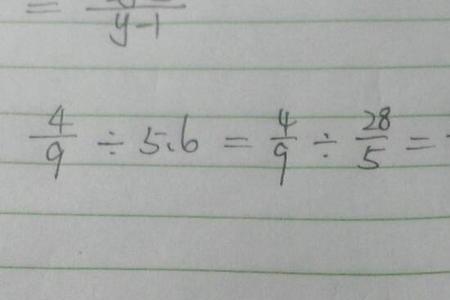 = y-1
4/9 ÷ 5.6 = 4/9 ÷ 28/5 =